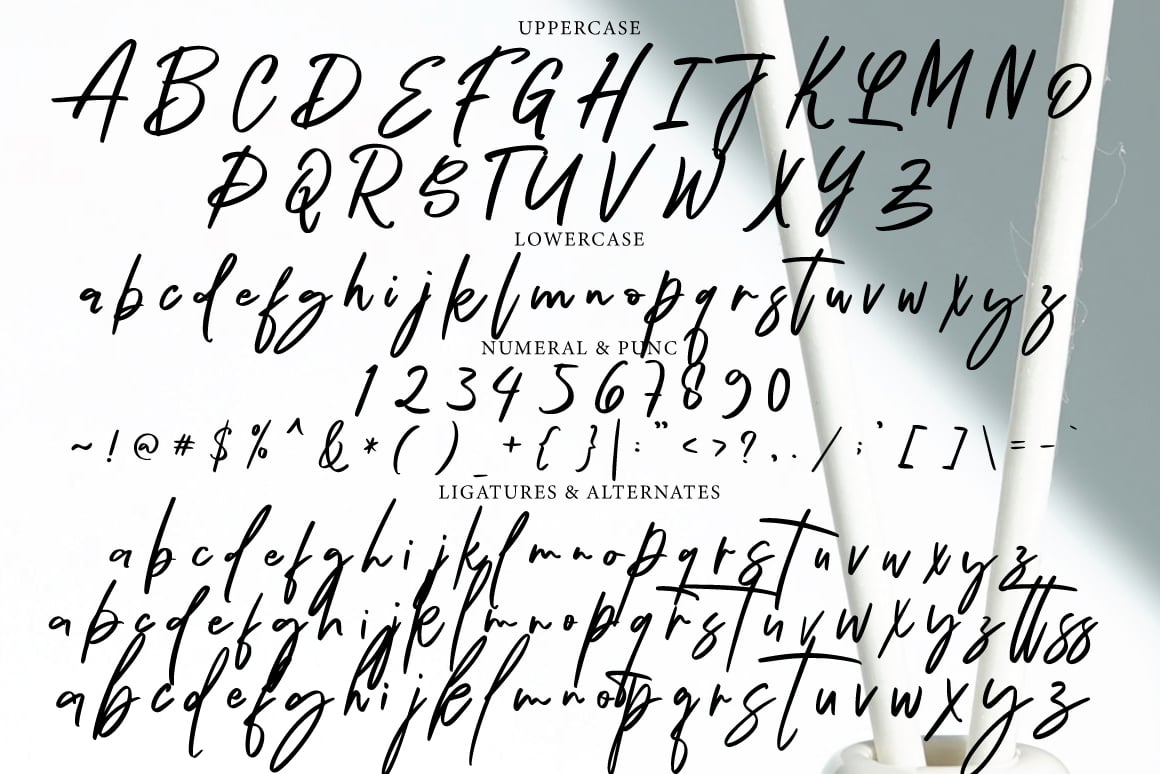 UPPERCASE
A B C D E F G H I J K L M N O
P Q R S T U V W X Y Z
LOWERCASE
a b c d e f g h i j k l m n o p q r s t u v w x y z
NUMERAL & PUNC
1 2 3 4 5 6 7 8 9 0
~ ! @ # $ % ^ & * ( ) _ + { } | : " < > ? , . / ; ' [ ] \ = - `
LIGATURES & ALTERNATES
a b c d e f g h i j k l m n o p q r s t u v w x y z
a b c d e f g h i j k l m n o p q r s t u v w x y z tt ss
a b c d e f g h i j k l m n o p q r s t u v w x y z